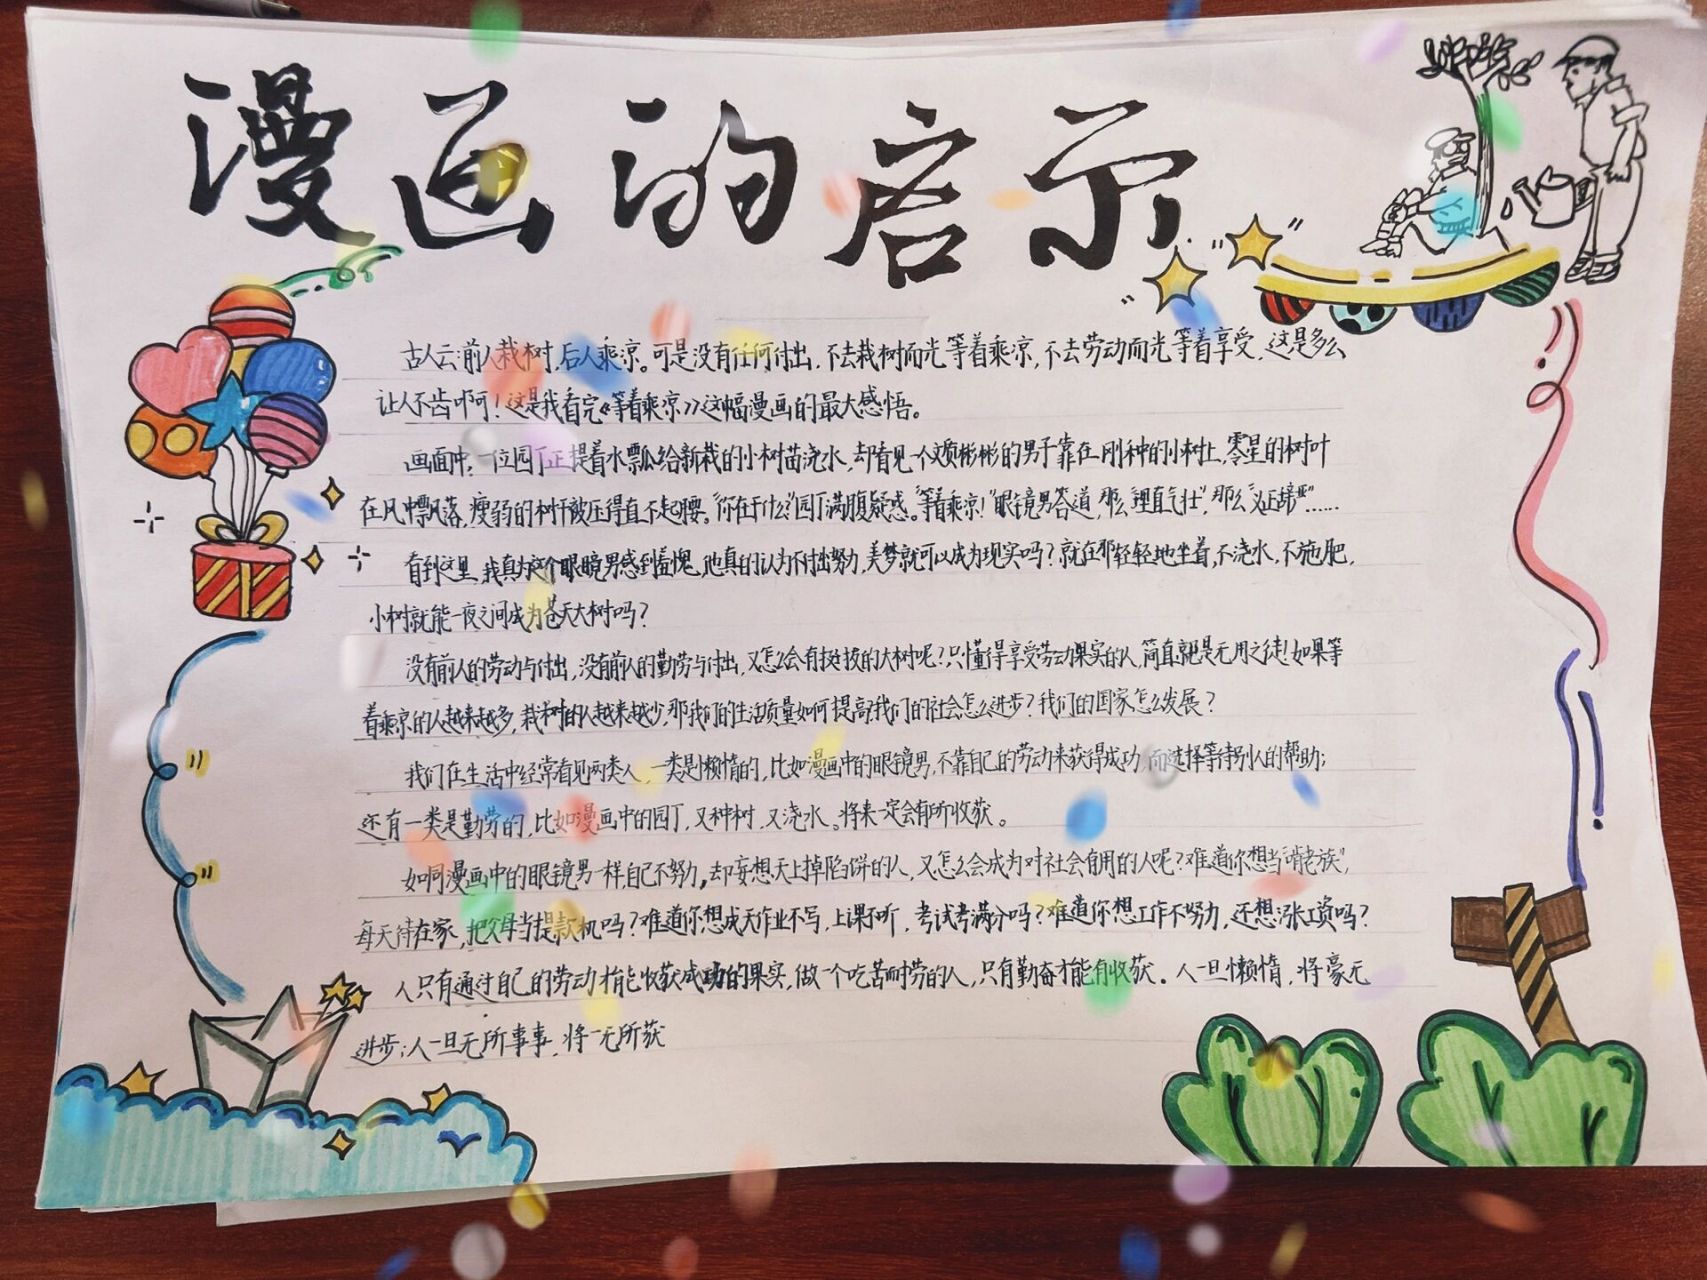 漫画的启示
古人云:前人栽树,后人乘凉。可是没有任何付出,不去栽树而光等着乘凉,不去劳动而光等着享受,这是多么
让人不齿啊!这是我看完《等着乘凉》这幅漫画的最大感悟。
画面中,一位园丁正提着水瓢给新栽的小树苗浇水,却看见一个文质彬彬的男子靠在刚种的小树上,零星的树叶
在风中飘落,瘦弱的树干被压得直不起腰。“你在干什么?”园丁满腹疑惑。“等着乘凉!”眼镜男答道,那么“理直气壮”,那么“义正辞严”……
看到这里,我真为这个眼镜男感到羞愧,他真的认为不付出努力,美梦就可以成为现实吗?就在那轻轻地坐着,不浇水,不施肥,
小树就能一夜之间成为苍天大树吗?
没有前人的劳动与付出,没有前人的勤劳与付出,又怎么会有挺拔的大树呢?只懂得享受劳动果实的人,简直就是无用之徒!如果等
着乘凉的人越来越多,栽树的人越来越少,那我们的生活质量如何提高?我们的社会怎么进步?我们的国家怎么发展?
我们在生活中经常看见两类人,一类是懒惰的,比如漫画中的眼镜男,不靠自己的劳动来获得成功,而选择等待别人的帮助;
还有一类是勤劳的,比如漫画中的园丁,又种树,又浇水。将来一定会有所收获。
如同漫画中的眼镜男一样,自己不努力,却妄想天上掉馅饼的人,又怎么会成为对社会有用的人呢?难道你想当“啃老族”,
每天待在家,把父母当提款机吗?难道你想成天作业不写,上课不听,考试考满分吗?难道你想工作不努力,还想涨工资吗?
人只有通过自己的劳动才能收获成功的果实,做一个吃苦耐劳的人,只有勤奋才能有收获。人一旦懒惰,将豪无
进步;人一旦无所事事,将一无所获